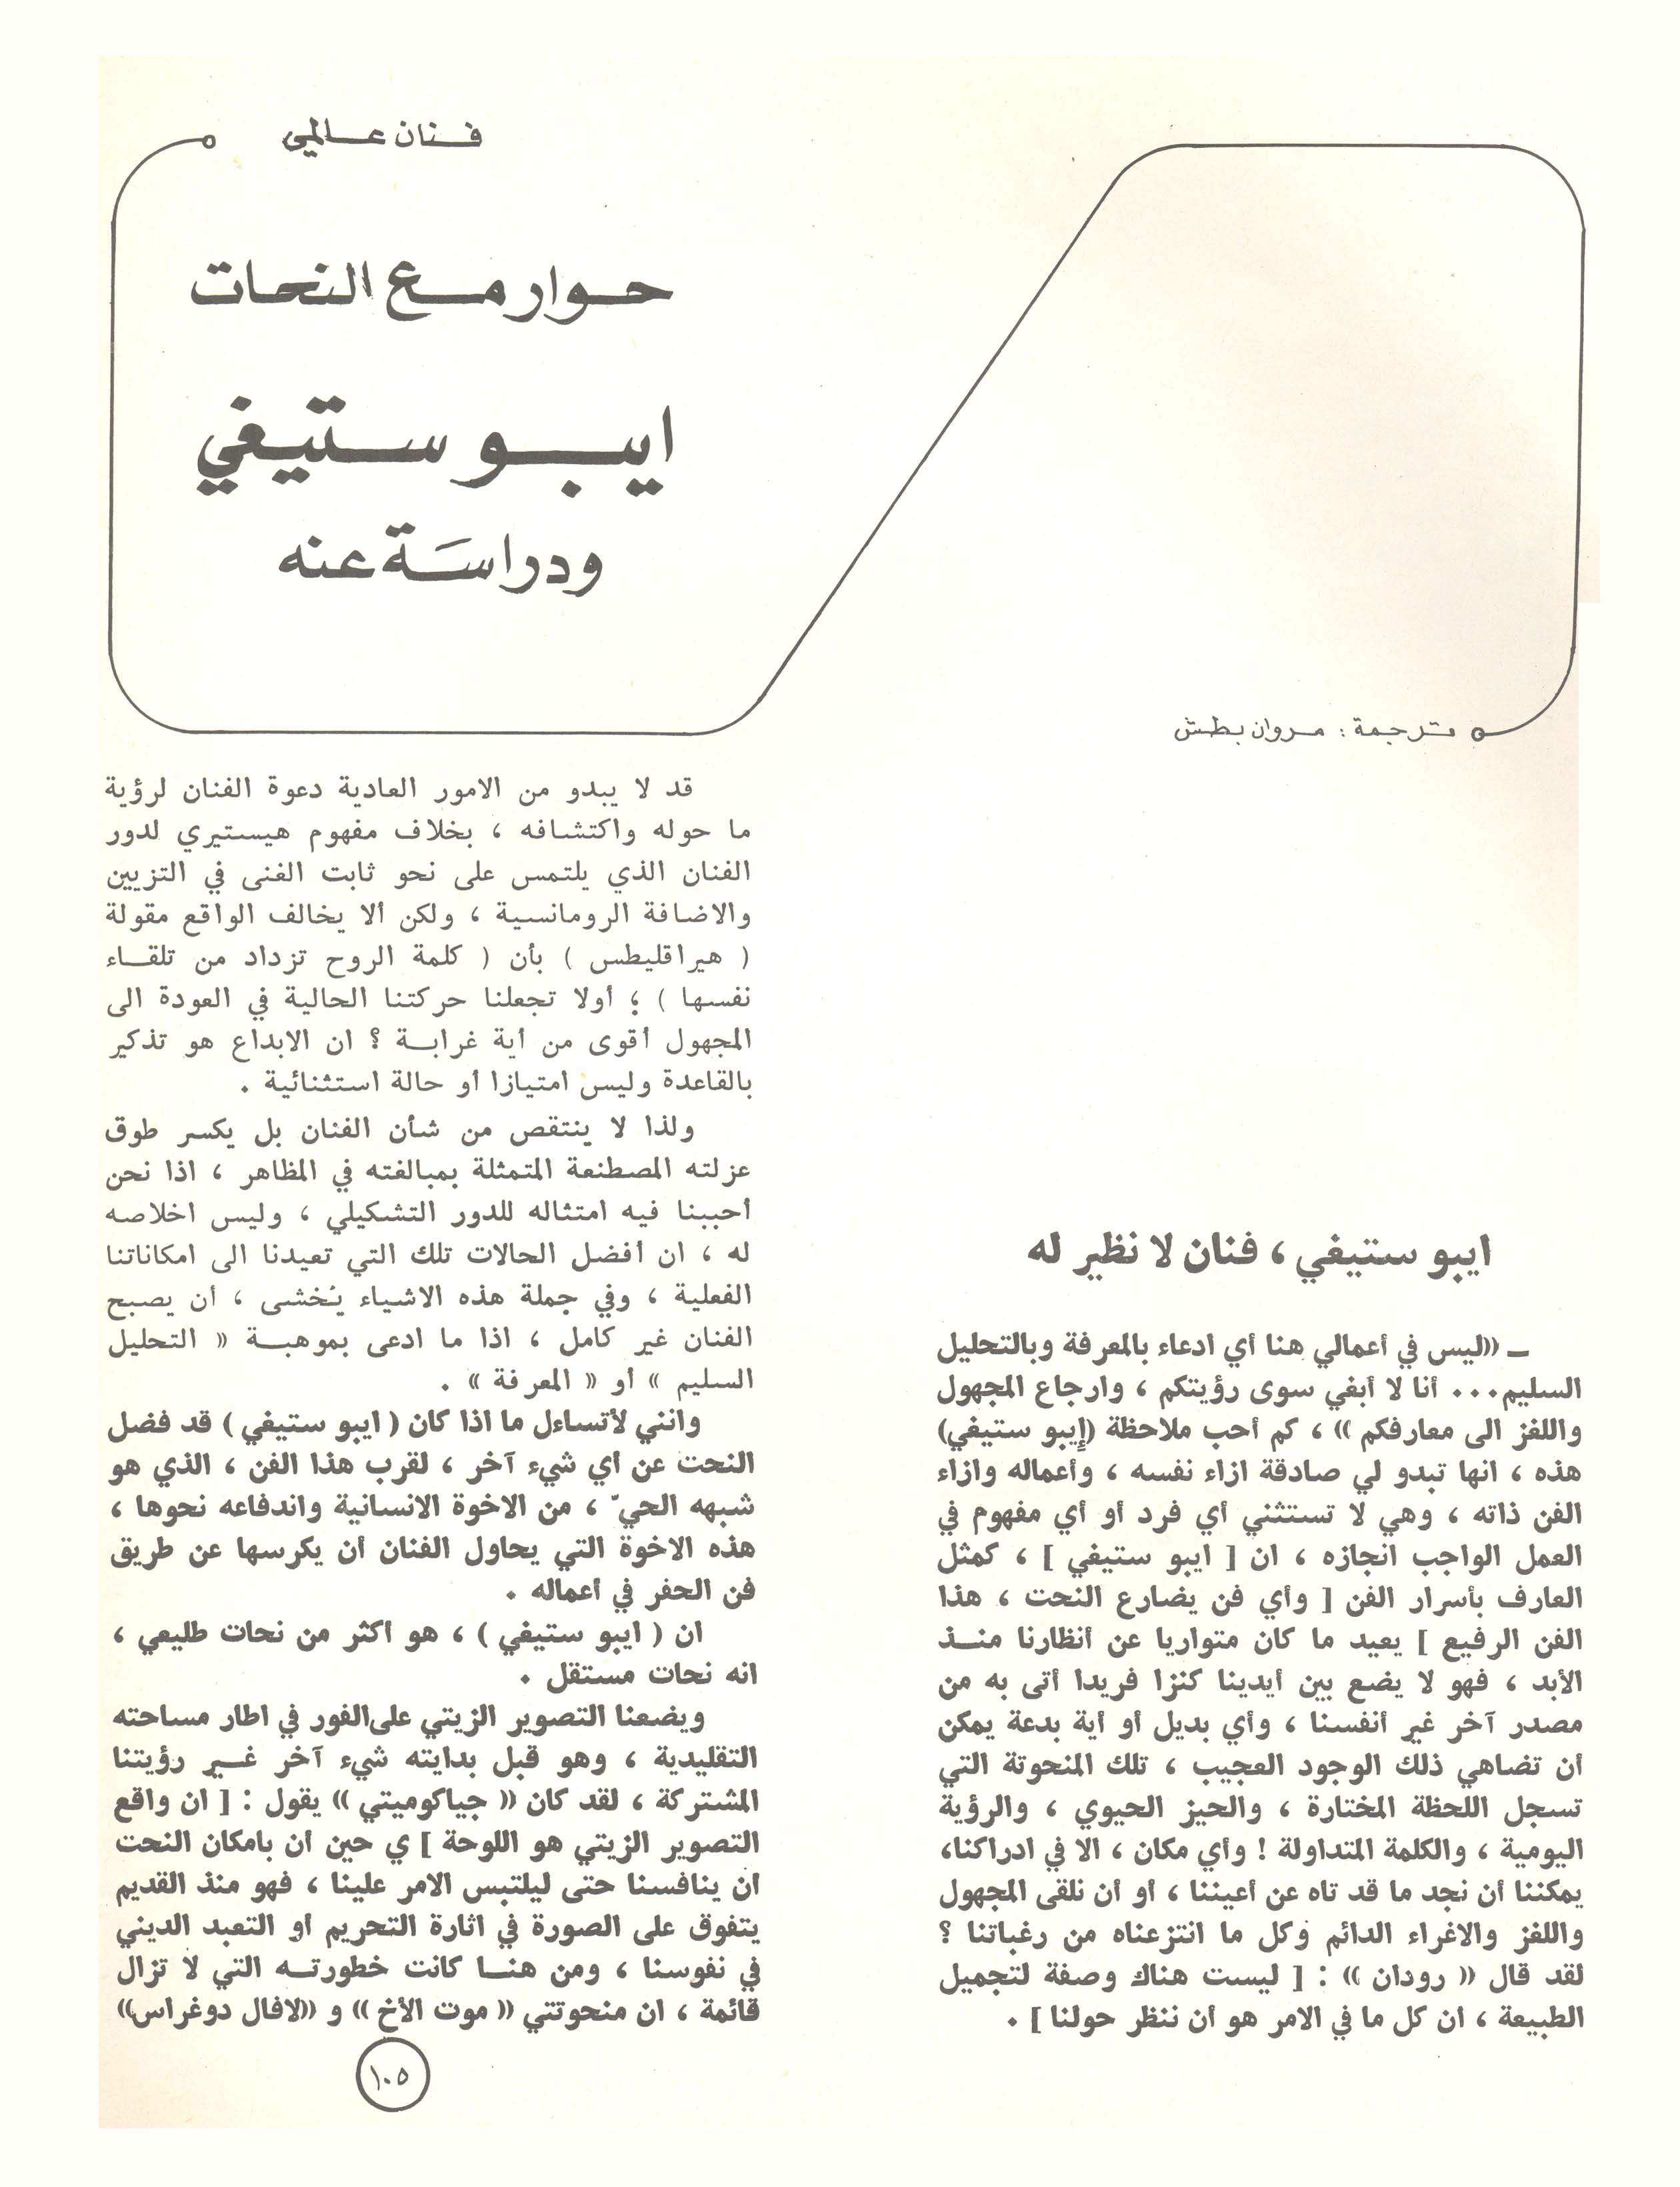 فنان عالمي
حوار مع النحات
ايبو ستيفي
ودراسَة عنه
ترجمة : مروان بطش
ايبو ستيفي ، فنان لا نظير له
ــ «ليس في أعمالي هنا أي ادعاء بالمعرفة وبالتحليل
السليم... أنا لا أبغي سوى رؤيتكم ، وارجاع المجهول
واللغز الى معارفكم » ، كم أحب ملاحظة (إيبو ستيفي)
هذه ، انها تبدو لي صادقة ازاء نفسه ، وأعماله وازاء
الفن ذاته ، وهي لا تستثني أي فرد أو أي مفهوم في
العمل الواجب انجازه ، ان [ ايبو ستيفي ] ، كمثل
العارف بأسرار الفن [ وأي فن يضارع النحت ، هذا
الفن الرفيع ] يعيد ما كان متواريا عن أنظارنا منـذ
الأبد ، فهو لا يضع بين أيدينا كنزا فريدا أتى به من
مصدر آخر غير أنفسنا ، وأي بديل أو أية بدعة يمكن
أن تضاهي ذلك الوجود العجيب ، تلك المنحوتة التي
تسجل اللحظة المختارة ، والحيز الحيوي ، والرؤية
اليومية ، والكلمة المتداولة ! وأي مكان ، الا في ادراكنا،
يمكننا أن نجد ما قد تاه عن أعيننا ، أو أن نلقى المجهول
واللغز والاغراء الدائم وكل ما انتزعناه من رغباتنا ؟
لقد قال « رودان » : [ ليست هناك وصفة لتجميل
الطبيعة ، ان كل ما في الامر هو أن ننظر حولنا ] .
قد لا يبدو من الامور العادية دعوة الفنان لرؤية
ما حوله واكتشافه ، بخلاف مفهوم هيستيري لدور
الفنان الذي يلتمس على نحو ثابت الغنى في التزيين
والاضافة الرومانسية ، ولكن ألا يخالف الواقع مقولة
( هيراقليطس ) بأن ( كلمة الروح تزداد من تلقـاء
نفسها ) ؛ أولا تجعلنا حركتنا الحالية في العودة الى
المجهول أقوى من أية غرابـة ؟ ان الابداع هو تذكير
بالقاعدة وليس امتيازا أو حالة استثنائية .
ولذا لا ينتقص من شأن الفنان بل يكسر طوق
عزلته المصطنعة المتمثلة بمبالغته في المظاهر ، اذا نحن
أحببنا فيه امتثاله للدور التشكيلي ، وليس اخلاصه
له ، ان أفضل الحالات تلك التي تعيدنا الى امكاناتنا
الفعلية ، وفي جملة هذه الاشياء يُخشى ، أن يصبح
الفنان غير كامل ، اذا ما ادعى بموهبـة « التحليل
السليم » أو « المعرفة » .
وانني لأتساءل ما اذا كان ( ايبو ستيفي ) قد فضل
النحت عن أي شيء آخر ، لقرب هذا الفن ، الذي هو
شبهه الحيّ ، من الاخوة الانسانية واندفاعه نحوها ،
هذه الاخوة التي يحاول الفنان أن يكرسها عن طريق
فن الحفر في أعماله .
ان ( ايبو ستيفي ) ، هو أكثر من نحات طليعي ،
انه نحات مستقل .
ويضعنا التصوير الزيتي على الفور في اطار مساحته
التقليدية ، وهو قبل بدايته شيء آخر غـير رؤيتنا
المشتركة ، لقد كان « جياكوميتي » يقول : [ ان واقع
التصوير الزيتي هو اللوحة ] ي حين أن بامكان النحت
ان ينافسنا حتى ليلتبس الامر علينا ، فهو منذ القديم
يتفوق على الصورة في اثارة التحريم أو التعبد الديني
في نفوسنا ، ومن هنـا كانت خطورتـه التي لا تزال
قائمة ، ان منحوتتي « موت الأخ » و «لافال دوغراس»
١٠٥